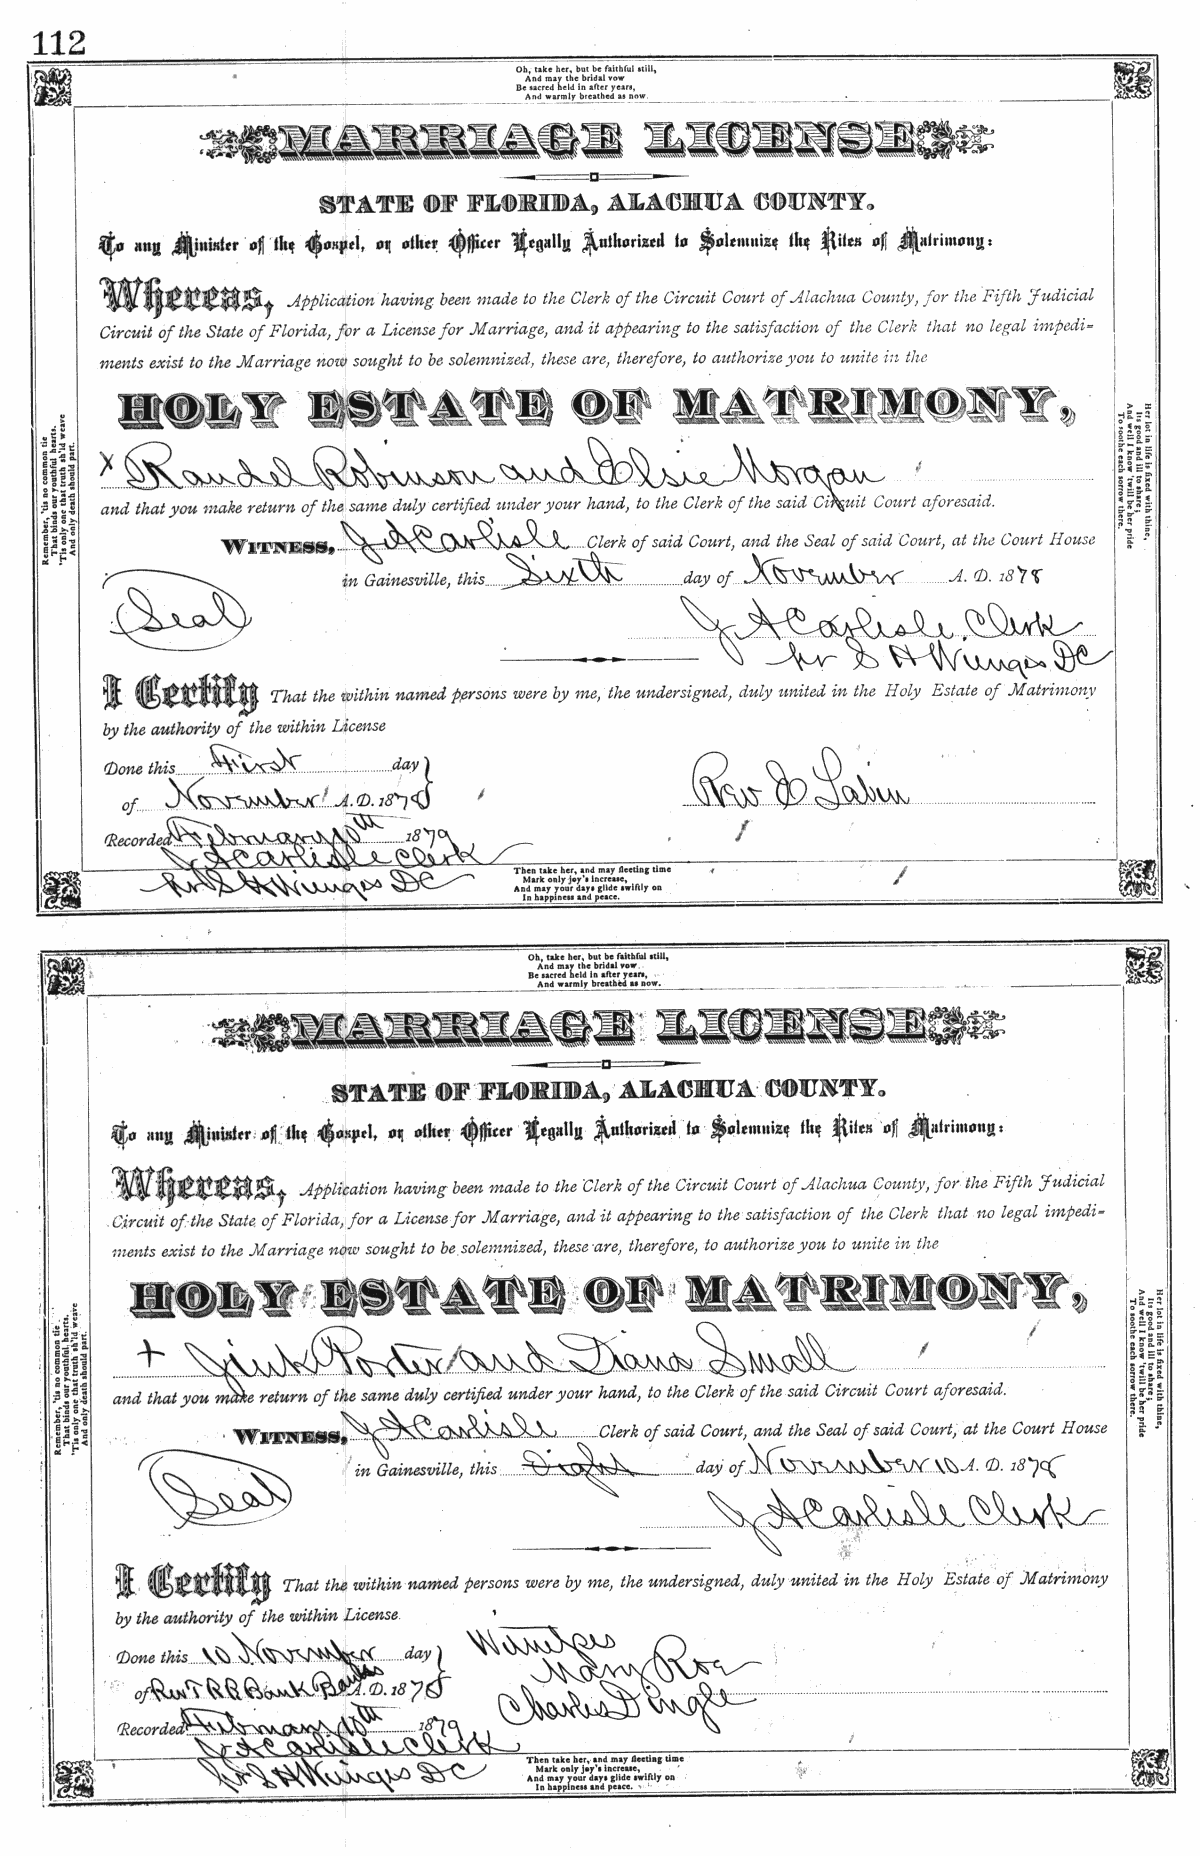 112
Oh, take her, but be faithful still,
And may the bridal vow
Be sacred held in after years,
And warmly breathed as now.
MARRIAGE LICENSE
STATE OF FLORIDA, ALACHUA COUNTY.
To any Minister of the Gospel, or other Officer Legally Authorized to Solemnize the Rites of Matrimony:
Whereas, Application having been made to the Clerk of the Circuit Court of Alachua County, for the Fifth Judicial
Circuit of the State of Florida, for a License for Marriage, and it appearing to the satisfaction of the Clerk that no legal impedi=
ments exist to the Marriage now sought to be solemnized, these are, therefore, to authorize you to unite in the
HOLY ESTATE OF MATRIMONY,
x Randel Robinson and Elsie Morgan
and that you make return of the same duly certified under your hand, to the Clerk of the said Circuit Court aforesaid.
WITNESS, J A Carlisle Clerk of said Court, and the Seal of said Court, at the Court House
in Gainesville, this Sixth day of November A. D. 1878
Seal
J A Carlisle Clerk
pr S H Wienges DC
I Certify That the within named persons were by me, the undersigned, duly united in the Holy Estate of Matrimony
by the authority of the within License
Done this First day
of November A. D. 1878
Rev E
Recorded February 10th 1879
J A Carlisle Clerk
pr S H Wienges DC
Then take her, and may fleeting time
Mark only joy's increase,
And may your days glide swiftly on
In happiness and peace.
Remember, 'tis no common tie
That binds our youthful hearts.
'Tis only one that truth sh'ld weave
And only death should part.
Her lot in life is fixed with thine,
Its good and ill to share;
And well I know 'twill be her pride
To soothe each sorrow there.
Oh, take her, but be faithful still,
And may the bridal vow
Be sacred held in after years,
And warmly breathed as now.
MARRIAGE LICENSE
STATE OF FLORIDA, ALACHUA COUNTY.
To any Minister of the Gospel, or other Officer Legally Authorized to Solemnize the Rites of Matrimony:
Whereas, Application having been made to the Clerk of the Circuit Court of Alachua County, for the Fifth Judicial
Circuit of the State of Florida, for a License for Marriage, and it appearing to the satisfaction of the Clerk that no legal impedi=
ments exist to the Marriage now sought to be solemnized, these are, therefore, to authorize you to unite in the
HOLY ESTATE OF MATRIMONY,
+ Jink Porter and Diana Small
and that you make return of the same duly certified under your hand, to the Clerk of the said Circuit Court aforesaid.
WITNESS, J A Carlisle Clerk of said Court, and the Seal of said Court, at the Court House
in Gainesville, this Eight day of November 10 A. D. 1878
Seal
J A Carlisle Clerk
I Certify That the within named persons were by me, the undersigned, duly united in the Holy Estate of Matrimony
by the authority of the within License
Done this 10 November day
of Rev T R R Bank Banks A. D. 1878
Witness
Mary Roe
Charles Dingle
Recorded February 10th 1879
J A Carlisle Clerk
pr S H Wienges DC
Then take her, and may fleeting time
Mark only joy's increase,
And may your days glide swiftly on
In happiness and peace.
Remember, 'tis no common tie
That binds our youthful hearts.
'Tis only one that truth sh'ld weave
And only death should part.
Her lot in life is fixed with thine,
Its good and ill to share;
And well I know 'twill be her pride
To soothe each sorrow there.